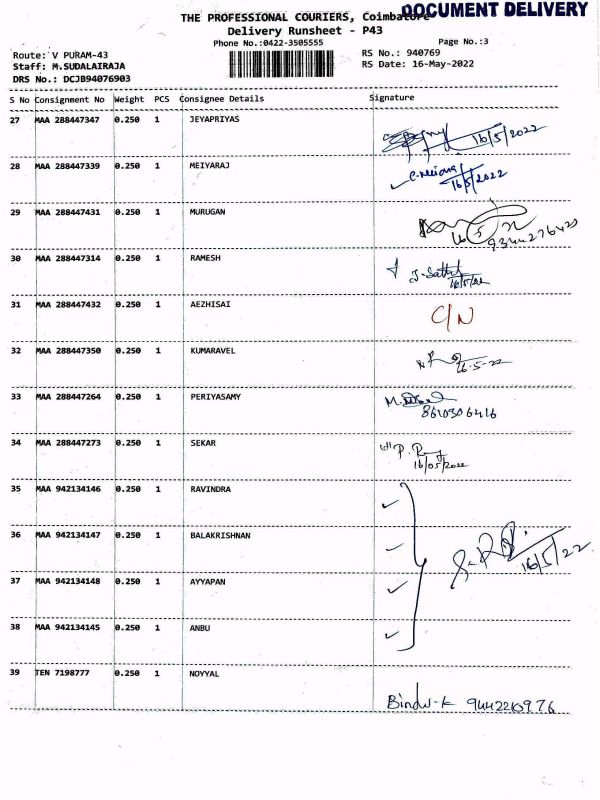 DOCUMENT DELIVERY
THE PROFESSIONAL COURIERS, Coimbatore
Delivery Runsheet - P43
Phone No.:0422-3505555
Page No.:3
Route: V PURAM-43
RS No.: 940769
Staff: M.SUDALAIRAJA
RS Date: 16-May-2022
DRS No.: DCJB94076903
S No Consignment No Weight PCS Consignee Details Signature
27 MAA 288447347 0.250 1 JEYAPRIYAS 16/5/2022
28 MAA 288447339 0.250 1 MEIYARAJ 16/5/2022
29 MAA 288447431 0.250 1 MURUGAN
30 MAA 288447314 0.250 1 RAMESH 16/5/22
31 MAA 288447432 0.250 1 AEZHISAI C/N
32 MAA 288447350 0.250 1 KUMARAVEL 16-5-22
33 MAA 288447264 0.250 1 PERIYASAMY M.
8610306416
34 MAA 288447273 0.250 1 SEKAR
16/05/2022
35 MAA 942134146 0.250 1 RAVINDRA
36 MAA 942134147 0.250 1 BALAKRISHNAN 16/5/22
37 MAA 942134148 0.250 1 AYYAPAN
38 MAA 942134145 0.250 1 ANBU
39 TEN 7198777 0.250 1 NOYYAL
Bindu-K